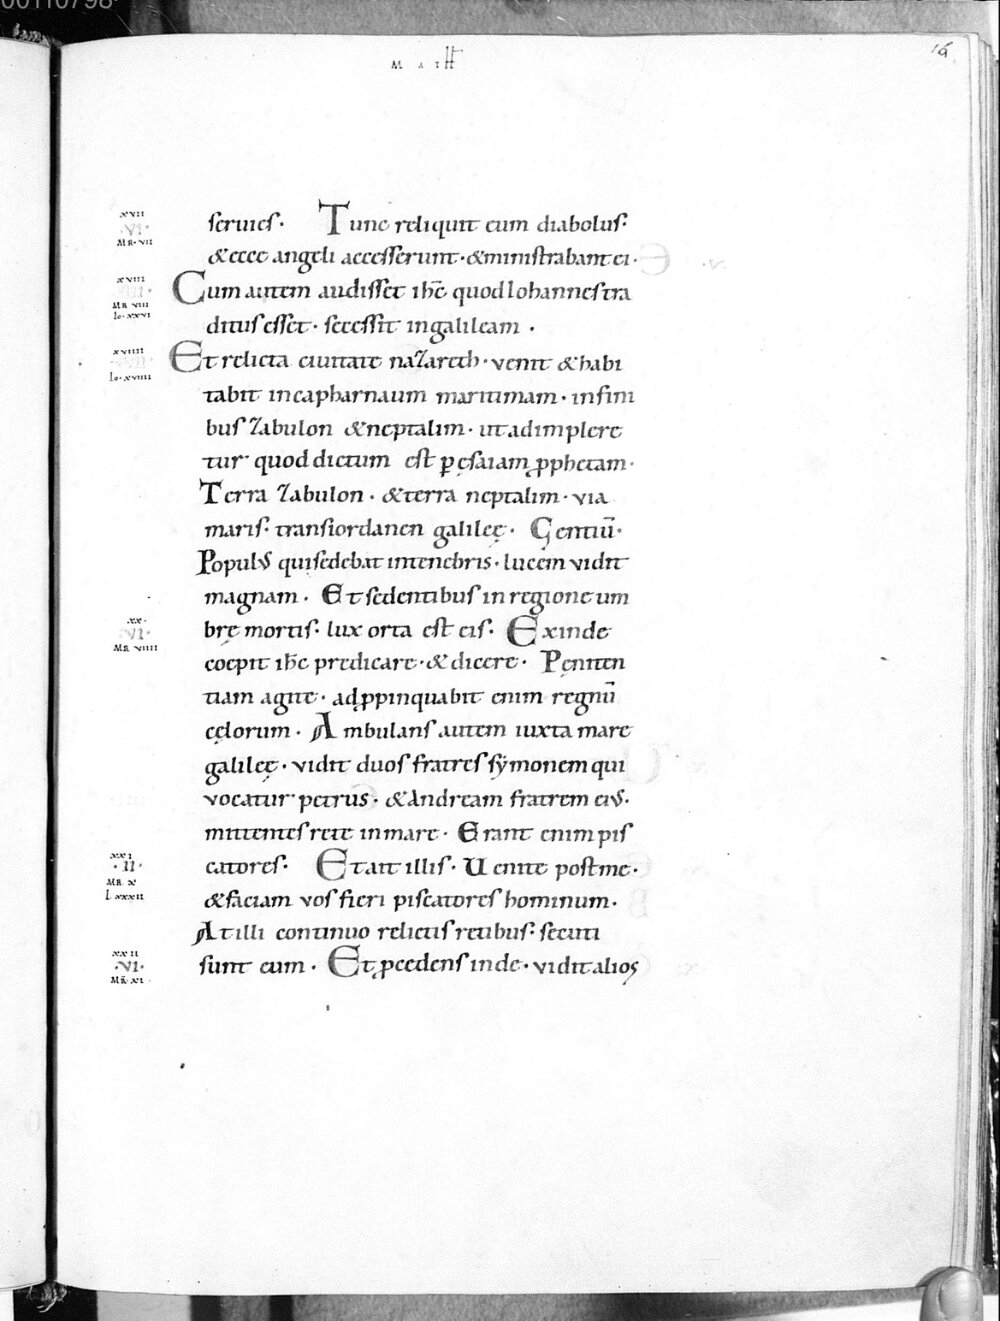 00110798
MATH
16
XVII
VI
MR · VII
seruies · Tunc reliquit eum diabolus ·
& ecce angeli accesserunt · & ministrabant ei ·
XVIII
MR VIII
Io · XXVI
Cum autem audisset ihc̅ quod Iohannes tra
ditus esset · secessit in galileam ·
XVIIII
Io · XVIIII
Et relicta ciuitate nazareth · venit & habi
tabit in capharnaum maritimam · in fini
bus zabulon & neptalim · ut adimplere
tur quod dictum est ꝑ esaiam ꝓphetam ·
Terra zabulon · & terra neptalim · via
maris · trans iordanen galileę · Gentiū ·
Populus qui sedebat in tenebris · lucem vidit
magnam · Et sedentibus in regione um
XX ·
VI ·
MR VIIII
brę mortis · lux orta est eis · Exinde
coepit ihc̅ predicare · & dicere · Pęniten
tiam agite · adꝓpinquabit enim regnū
cęlorum · Ambulans autem iuxta mare
galileę · vidit duos fratres sẏmonem qui
vocatur petrus · & Andream fratrem eius ·
mittentes rete in mare · Erant enim pis
XXI
· II ·
MR X
L XXXII
catores · Et ait illis · Uenite post me ·
& faciam vos fieri piscatores hominum ·
At illi continuo relictis retibus · secuti
XXII
· VI ·
MR · XI ·
sunt eum · Et ꝓcedens inde · vidit alios